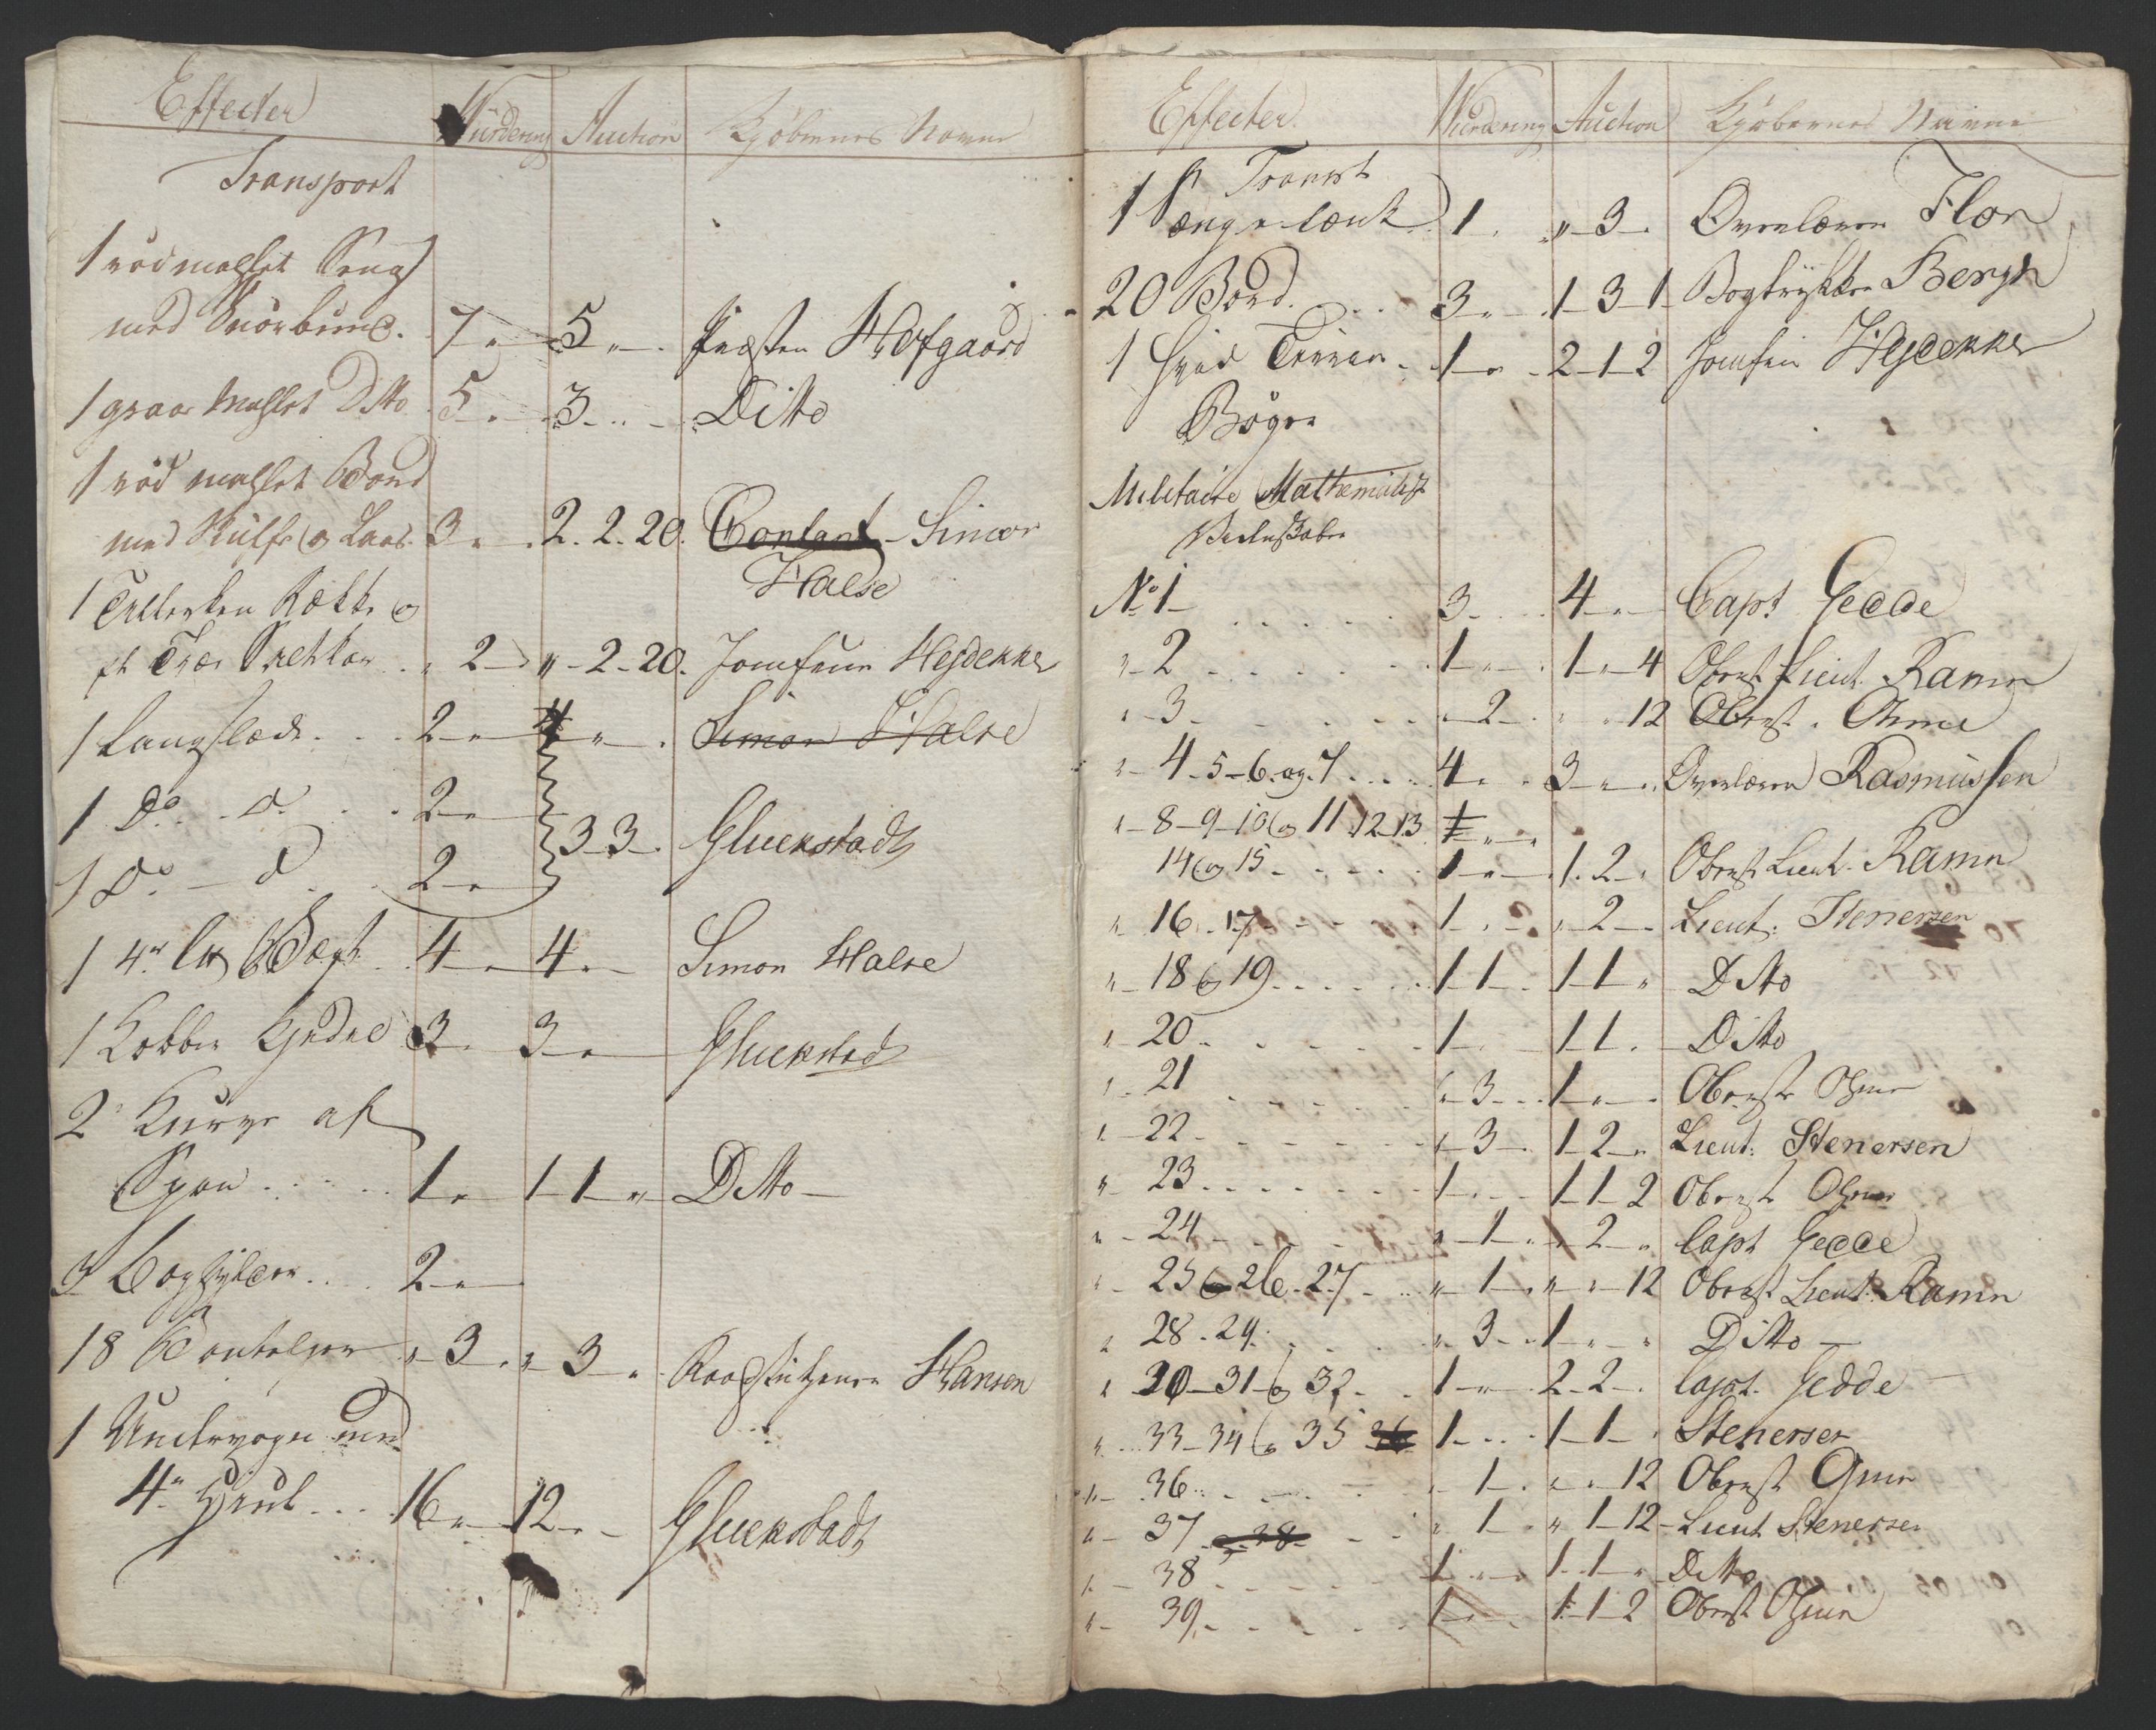 Effecter Vurdering Auction Kjøbernes Navne
Transport
1 rød mahlet Seng
med Snorbund. 7 „ — 5 „ — Præsten Hofgaard
1 graae Mahlet Ditto 5 „ 3 „ — Ditto
1 rød mahlet Bord
med Skuffe og Laas. 3 „ 2. 2. 20. Contant - Simon
Halse
1 Tallerken Række og
et Træe „ 2 — „ - 2 - 20. Jomfrue Hejdekker
1 Langslæde 2 — „ 4 „ — Simon Halse
1 Do - d 2 — „
3 - 3 - Gluckstadt
1 Do - d 2 — „
1 4 — „ 4 — „ Simon Halse
1 Kobber Kjedel 3 — „ 3 — „ Gluckstad
2 Kurve af
Spon 1 — „ 1 - 1 „ Ditto —
3 Boghylder 2 — „
18 „ 3 — „ „ 3 — „ Hansen
1 Undervogn med
4 Hjul 16 — „ 12 — „ Gluckstadt
Effecter. Vurdering Auction Kjøbernes Navne
Transpt
1 Hængelænk 1 „ „ - 3 — Overlærer Flor
20 Bord 3 — „ 1 - 3 - 1 Bogtrykker Bergh
1 hvid 1 — „ 2 - 1 - 2 Jomfru Hejdekker
Bøger
Militaire Mathematisk
Videnskaber
No 1 3 — 4 — „ Capt Gedde
„ - 2 1 — „ 1 - „ - 4 Oberst Lieut. Ramm
„ - 3 „ - 2 — „ „ 12 Oberst. Ohme
„ - 4 - 5 - 6 - og - 7 4 — „ 3 — „ Overlærer Rasmussen
„ - 8 - 9 - 10 og 11 12 - 13
14 og 15 1 — „ 1. 2 — Oberst Lieut. Ramm
„ - 16 - 17 1 — „ „ - 2 — Lieut: Stenersen
„ - 18 og 19 1 - 1 — 1 - 1 „ Ditto
„ - 20 1 — 1 - 1 . Ditto
„ - 21 „ - 3 — 1 — „ Oberst Ohme
„ - 22 „ - 3 — 1 - 2 — „ Lieut: Stenersen
„ - 23 1 — 1 - 1 - 2 Oberst Ohme
„ - 24 „ - 1 — „ - 2 — „ Capt Gedde
„ - 25 og 26 - 27 „ - 1 — „ „ 12 Oberst Lieut. Ramm
„ 28 - 29 „ 3 — 1 — „ Ditto —
„ 30 - 31 og 32 1 — „ 2 - 2 — Capt. Gedde
„ 33 - 34 og 35 36 1 — 1 - 1 — Stenersen
„ - 36 „ 1 — „ „ 12 Oberst Ohme
„ - 37 - 38 „ 1 — „ 1 - 12 - Lieut Stenersen
„ - 38 1 — „ 1 - 1 „ Ditto
„ - 39 1 — „ 1 - 1 - 2 Oberst Ohme